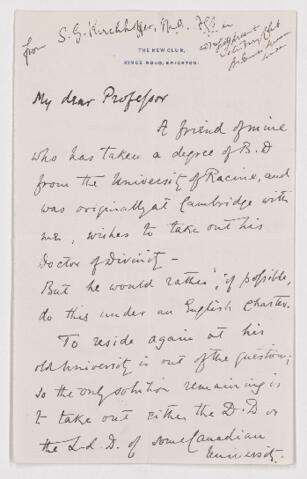 from S. G. Kirchhoffer, M.A.
THE NEW CLUB,
KINGS ROAD, BRIGHTON.
My dear Professor
A friend of mine
who has taken a degree of B.D
from the University of Racine, and
was originally at Cambridge with
me, wishes to take out his
Doctor of Divinity -
But he would rather, if possible,
do this under an English Charter.
To reside again at his
old University is out of the question;
so the only solution remaining is
to take out either the D.D or
the L.L.D. of some Canadian
University.